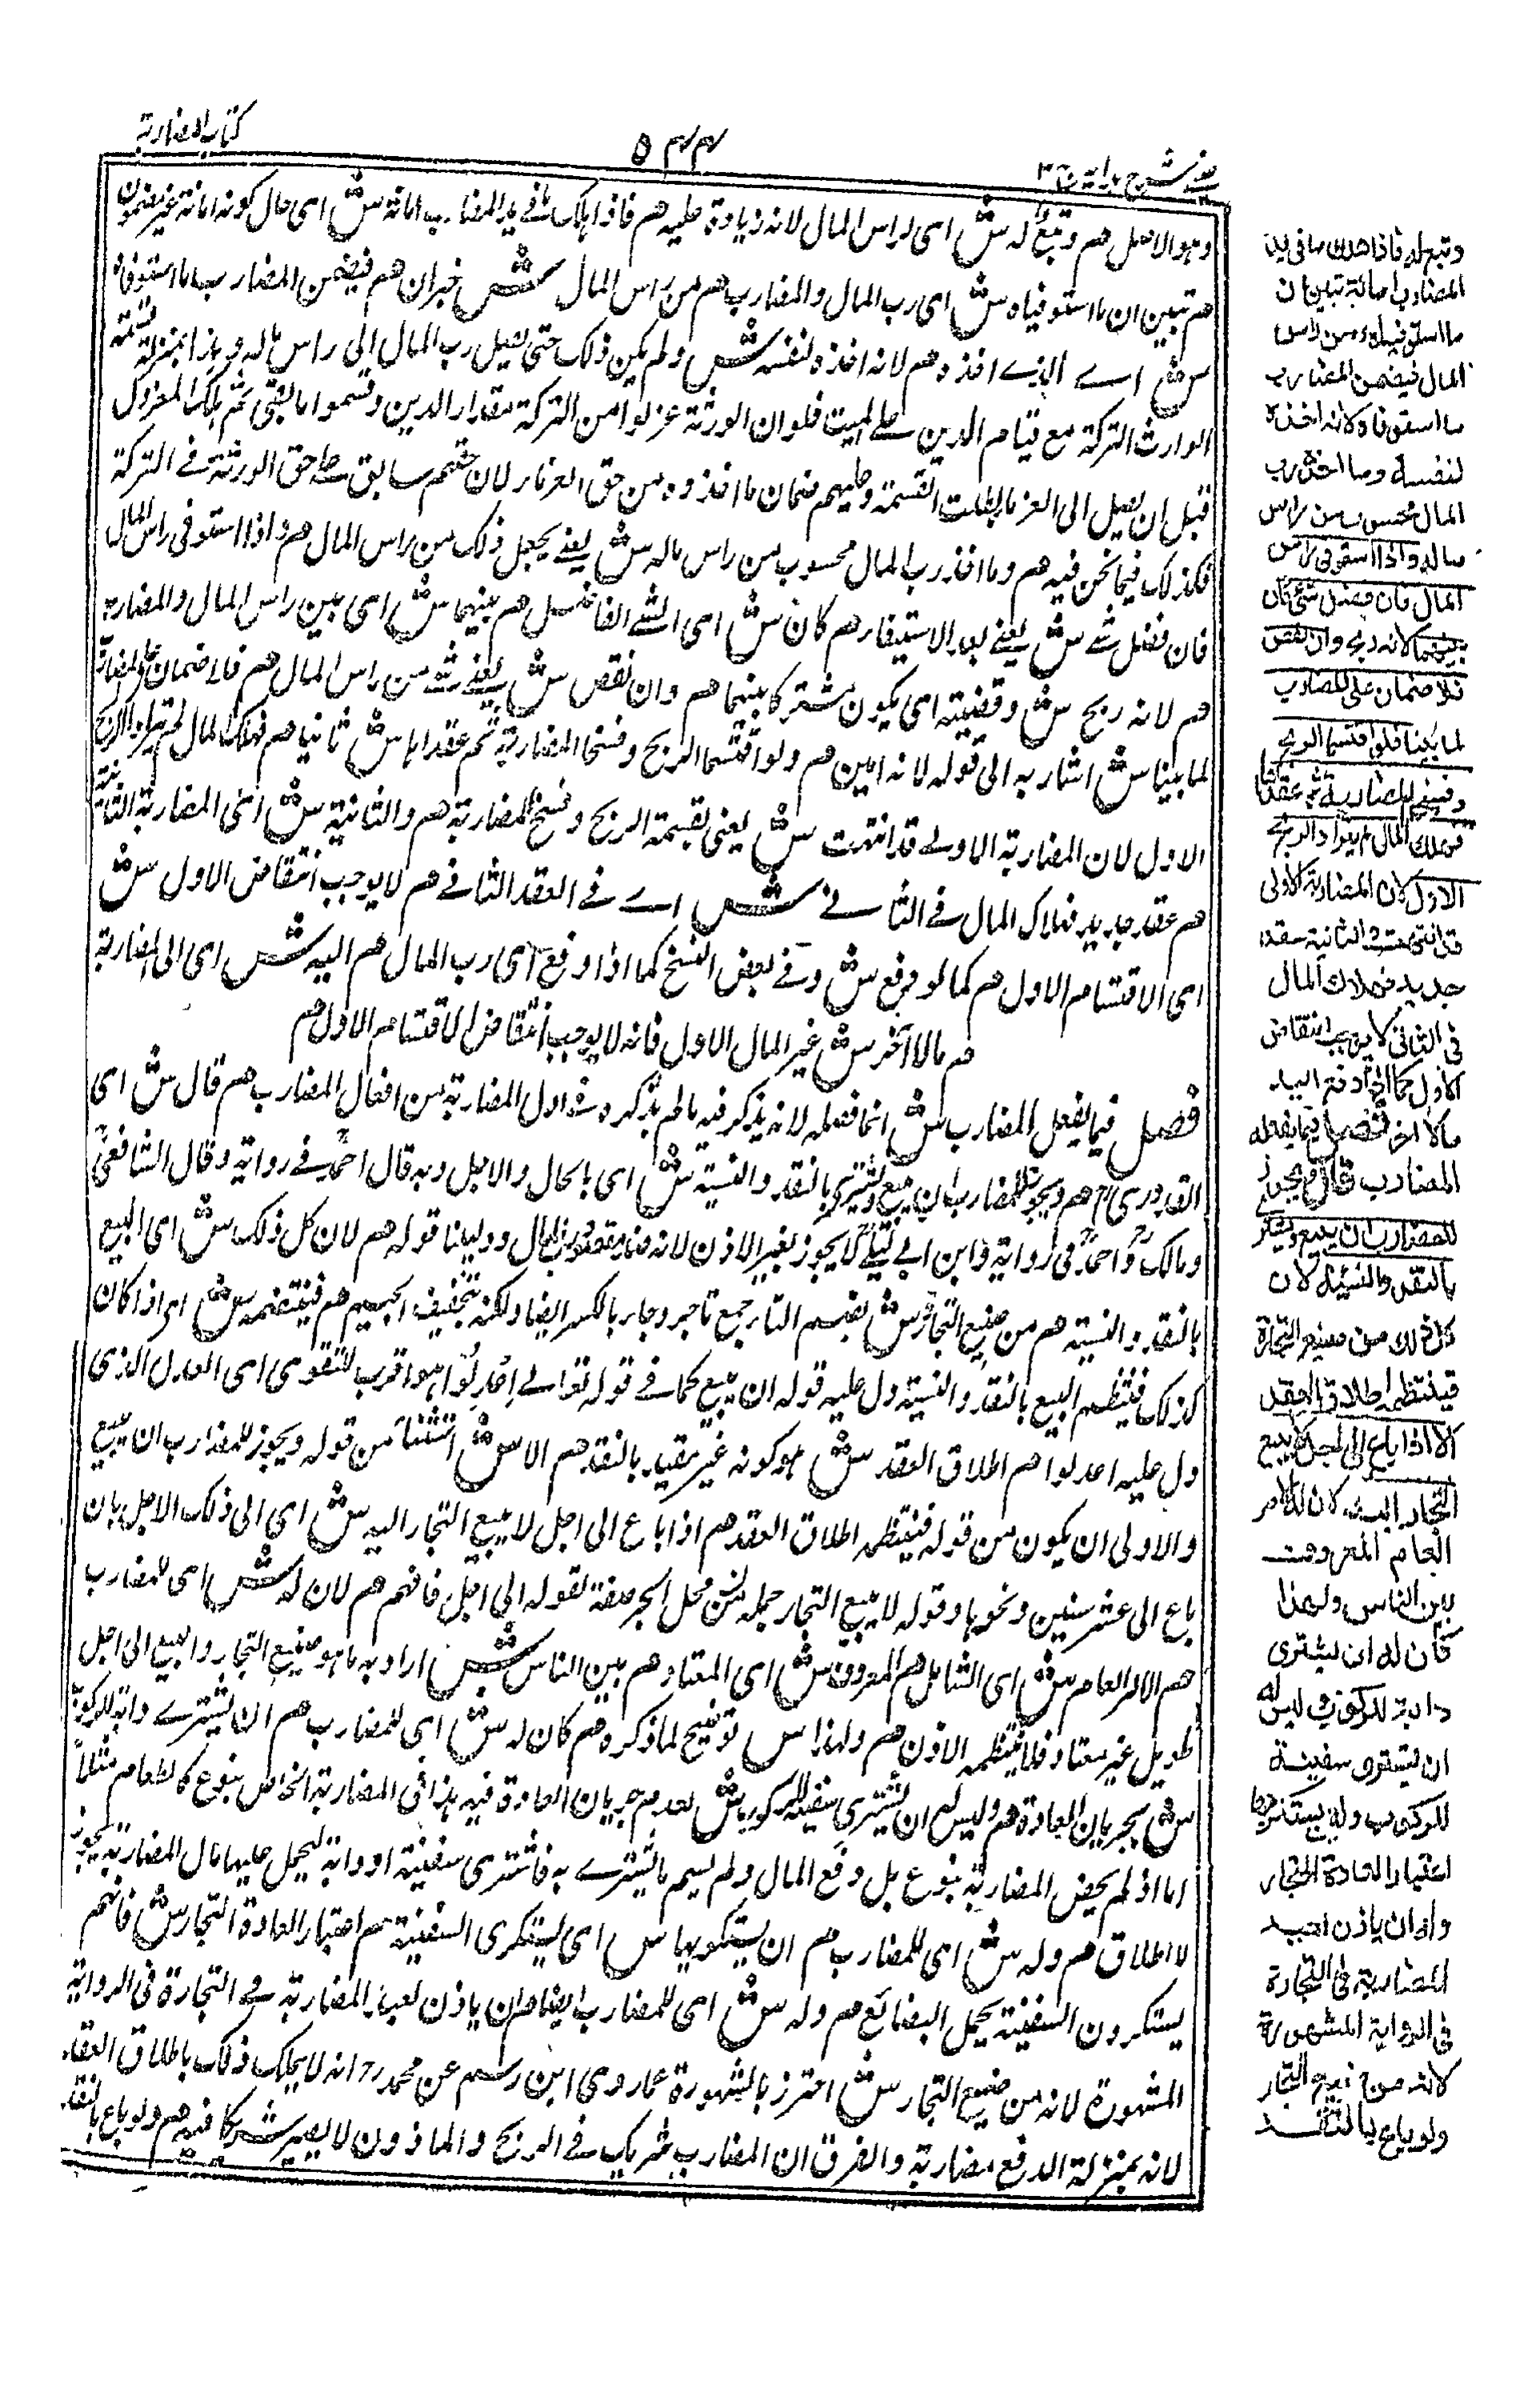 عينى شرح هداية ج ٣
٥٤٤
كتاب المضاربة
وهو الاصل هم وتبع له ش اى لراس المال لانه زيادة عليه هم فاذا هلك ما فى يد المضارب امانة ش اى حال كونه امانة غير مضمون
هم تبين ان ما استوفياه ش اى رب المال والمضارب هم من راس المال ش خبر ان هم فيضمن المضارب ما استوفاه
ش اى الذى اخذه هم لانه اخذه لنفسه ش ولم يكن ذلك حتى يصل رب المال الى راس ماله وهذا بمنزلة قسمة
الوارث التركة مع قيام الدين على الميت فلو ان الورثة عزلوا من التركة مقدار الدين وقسموا ما بقى ثم هلك المعزول
قبل ان يصل الى الغرماء بطلت القسمة وعليهم ضمان ما اخذوه من حق الغرماء لان حقهم سابق على حق الورثة فى التركة
فكذلك فيما نحن فيه هم وما اخذ رب المال محسوب من راس ماله ش يعنى يجعل ذلك من راس المال هم واذا استوفى راس المال
فان فضل شئ ش يعنى بعد الاستيفاء هم كان ش اى الشئ الفاضل هم بينهما ش اى بين راس المال والمضاربة
هم لانه ربح ش وقضيته اى يكون مشتركا بينهما هم وان نقص ش يعنى شئ من راس المال هم فلا ضمان على المضارب
لما بينا ش اشار به الى قوله لانه امين هم ولو اقتسما الربح وفسخا المضاربة ثم عقداها ش ثانيا هم فهلك المال لم يترادا الربح
الاول لان المضاربة الاولى قد انتهت ش يعنى بقسمة الربح وفسخ المضاربة هم والثانية ش اى المضاربة الثانية
هم عقد جديد فهلاك المال فى الثانى ش اى فى العقد الثانى هم لا يوجب انتقاض الاول ش
اى الاقتسام الاول هم كما لو دفع ش وفى بعض النسخ كما اذا دفع اى رب المال هم اليه ش اى الى المضاربة
هم مالا آخر ش غير المال الاول فانه لا يوجب انتقاض الاقتسام الاول هم
فصل فيما يفعل المضارب ش انما فصله لانه يذكر فيه ما لم يذكره فى اول المضاربة من افعال المضارب هم قال ش اى
القدورى هم ويجوز للمضارب ان يبيع ويشترى بالنقد والنسيئة ش اى بالحال والاجل وبه قال احمد فى رواية وقال الشافعى
ومالك واحمد فى رواية وابن ابى ليلى لا يجوز بغير الاذن لانه المال ودليلنا قوله هم لان كل ذلك ش اى البيع
بالنقد والنسيئة هم من صنيع التجار ش بضم التاء جمع تاجر وجاء بالكسر ايضا ولكنه بتخفيف الجيم هم فينتظمه ش اى اذا كان
كذلك فينتظم البيع بالنقد والنسيئة دل عليه قوله ان يبيع كما فى قوله تعالى اعدلوا هو اقرب للتقوى اى العدل الذى
دل عليه اعدلوا هم اطلاق العقد ش هو كونه غير مقيد بالنقد هم الا ش استثناء من قوله ويجوز للمضارب ان يبيع
والاولى ان يكون من قوله فينتظمه اطلاق العقد هم اذا باع الى اجل لا يبيع التجار اليه ش اى الى ذلك الاجل بان
باع الى عشر سنين ونحوها وقوله لا يبيع التجار جملة فى محل الجر صفة لقوله الى اجل فافهم هم لان له ش اى للمضارب
هم الامر العام ش اى الشامل هم المعروف ش اى المعتاد هم بين الناس ش اراد به ما هو صنيع التجار والبيع الى اجل
طويل غير معتاد فلا ينتظمه الاذن هم ولهذا ش توضيح لما ذكره هم كان له ش اى للمضارب هم ان يشترى دابة للركوب
ش لجريان العادة هم وليس له ان يشترى سفينة للركوب ش لعدم جريان العادة فيه هذا فى المضاربة الخاص بنوع كالطعام مثلا
اما اذا لم يخص المضاربة بنوع بل دفع المال ولم يسم ما يشترى به فاشترى سفينة او دابة ليحمل عليها مال المضاربة يجوز
لا اطلاق هم وله ش اى للمضارب هم ان يستكريها ش اى يستكرى السفينة هم اعتبارا لعادة التجار ش فانهم
يستكرون السفينة لحمل البضائع هم وله ش اى للمضارب ايضا هم ان ياذن لعبد المضاربة فى التجارة فى الرواية
المشهورة لانه من صنيع التجار ش احترز بالمشهورة عما روى ابن رستم عن محمد رح انه لا يملك ذلك باطلاق العقد
لانه بمنزلة الدفع مضاربة والفرق ان المضارب شريك فى الربح والماذون لا يصير شريكا فيه هم ولو باع بالنقد
وتبع له فاذا هلك ما فى يد
المضارب امانة تبين ان
ما استوفياه من راس
المال فيضمن المضارب
ما استوفاه لانه اخذه
لنفسه وما اخذ رب
المال محسوب من راس
ماله واذا استوفى راس
المال فان فضل شئ كان
بينهما لانه ربح وان نقص
فلا ضمان على المضارب
لما بينا فلو اقتسما الربح
وفسخا المضاربة ثم عقداها
فهلك المال لم يترادا الربح
الاول لان المضاربة الاولى
قد انتهت والثانية عقد
جديد فهلاك المال
فى الثانى لا يوجب انتقاض
الاول كما اذا دفع اليه
مالا اخر فصل فيما يفعله
المضارب قال ويجوز
للمضارب ان يبيع ويشترى
بالنقد والنسيئة لان
كل ذلك من صنيع التجارة
فينتظمه اطلاق العقد
الا اذا باع الى اجل لا يبيع
التجار اليه لان له الامر
العام المعروف
بين الناس ولهذا
كان له ان يشترى
دابة للركوب وليس له
ان يشترى سفينة
للركوب وله ان يستكريها
اعتبارا لعادة التجار
وله ان ياذن لعبد
المضاربة فى التجارة
فى الرواية المشهورة
لانه من صنيع التجار
ولو باع بالنقد